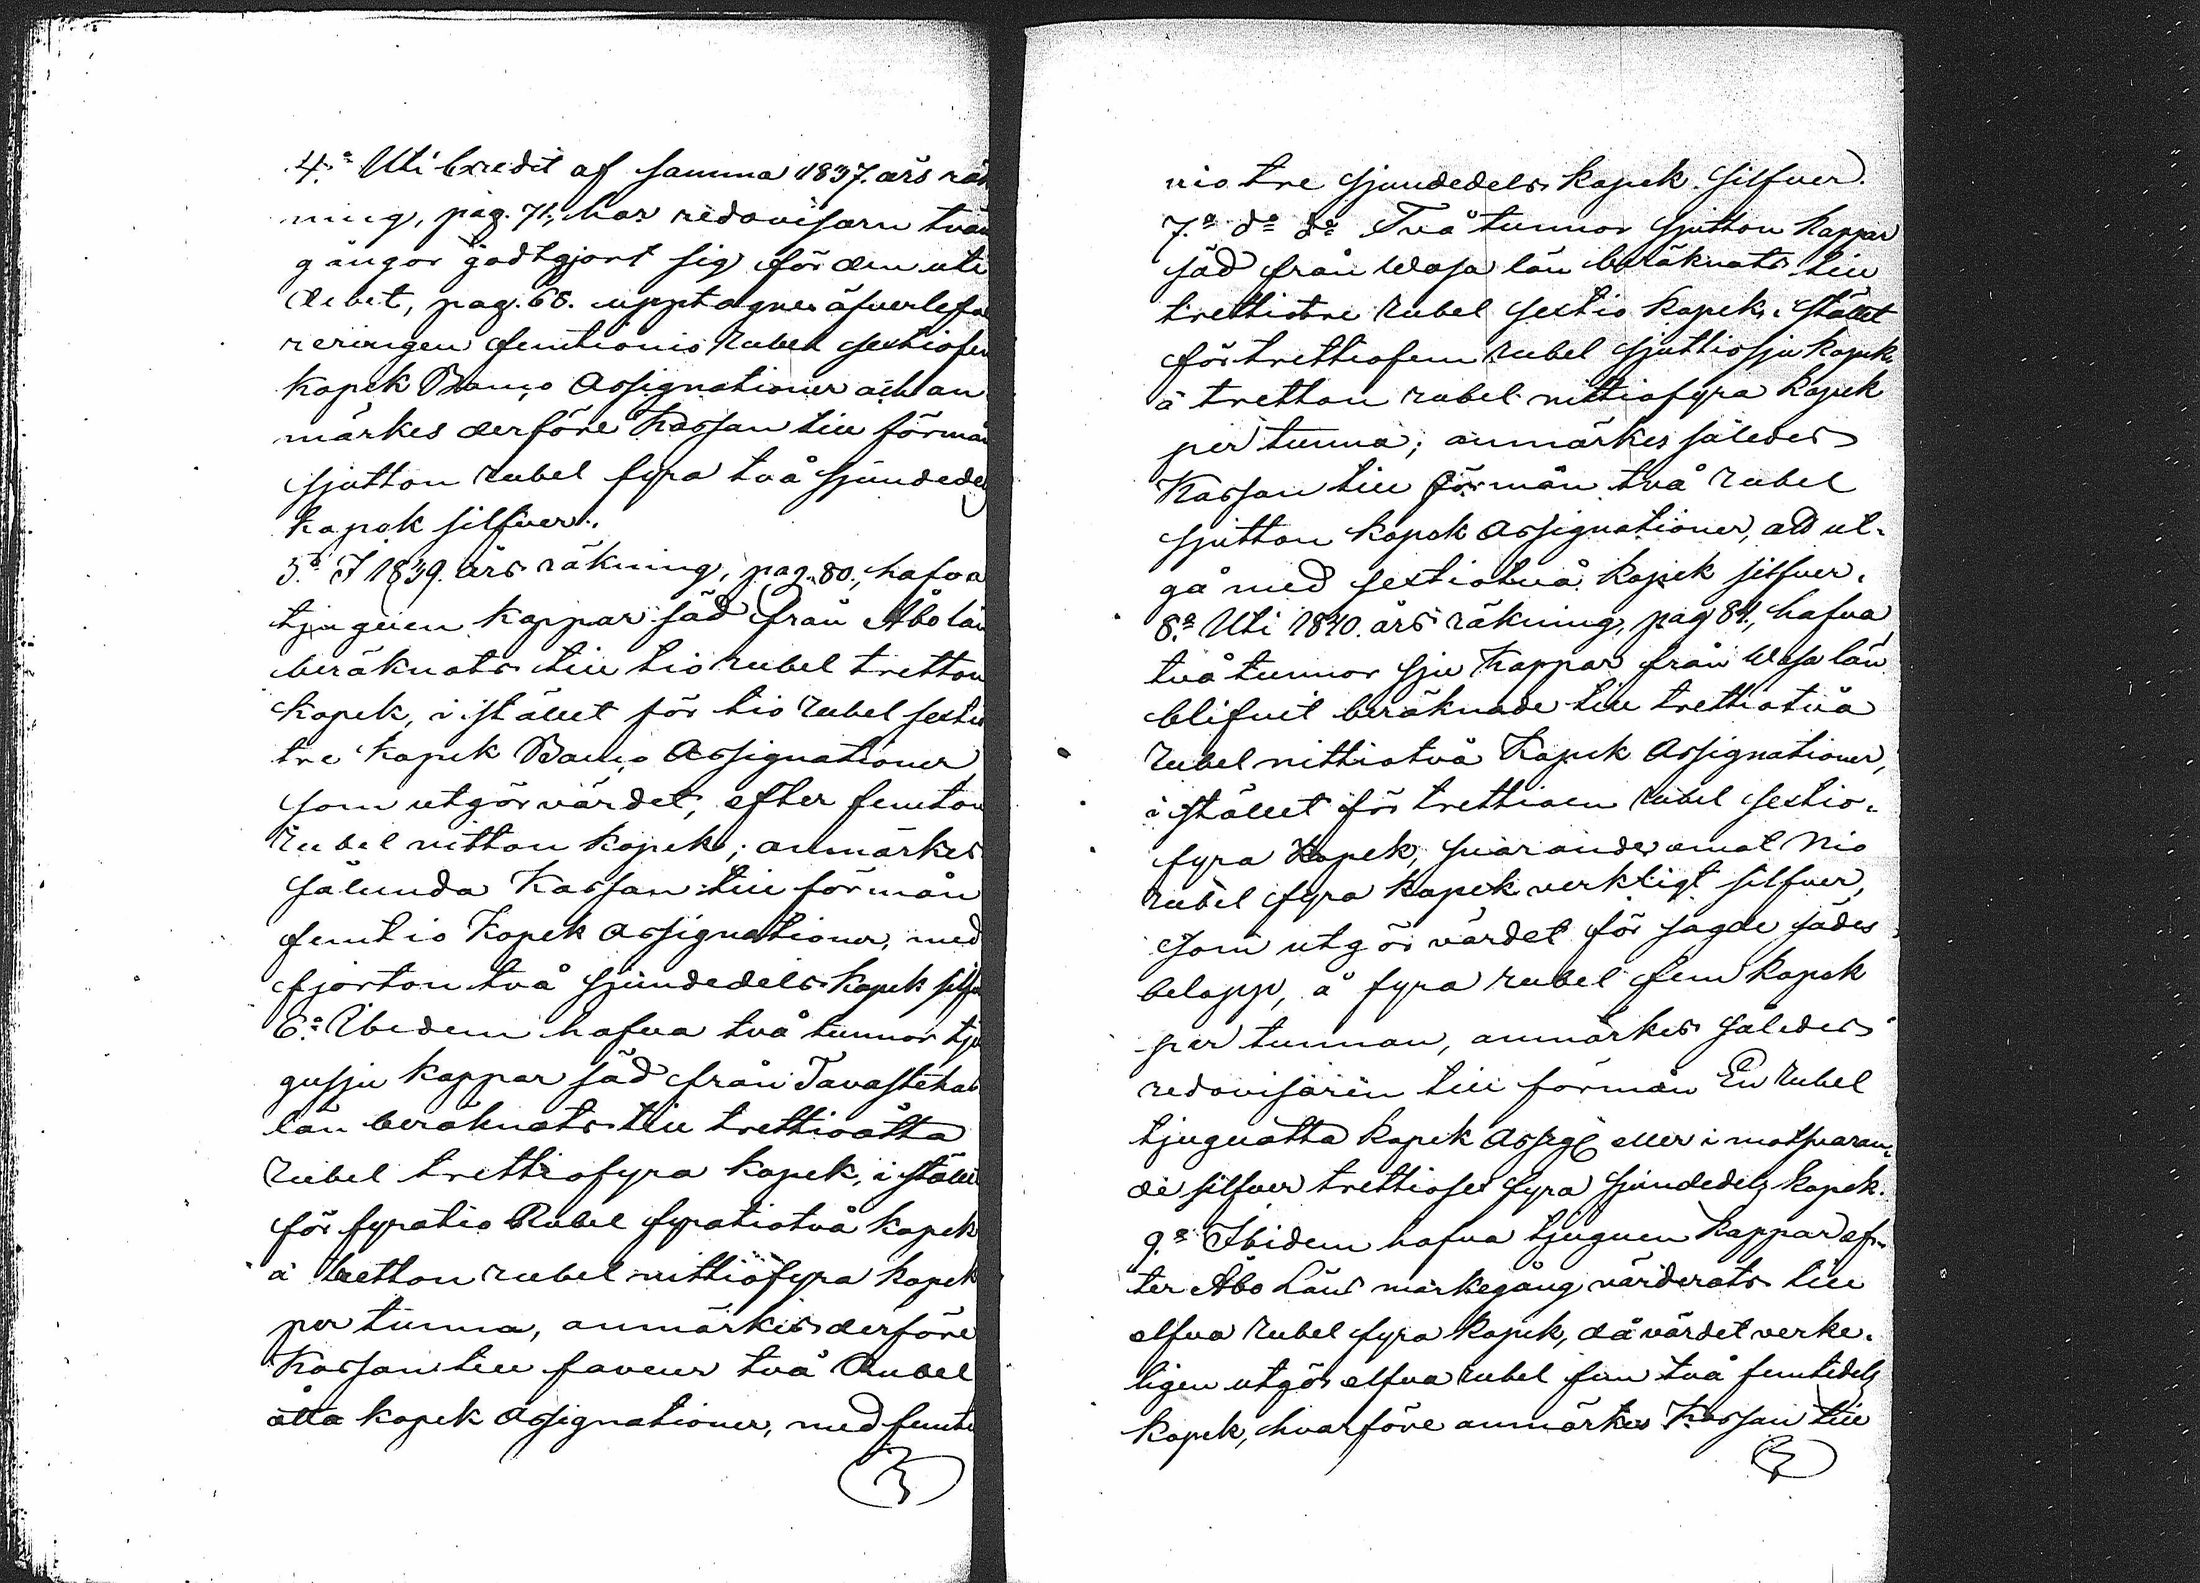 4:o Uti Credit af samma 1837. års räk
ning, pag. 71, har redovisarn tvän
gångor godtgjort sig för den uti
debet, pag. 68. upptagne öfverlefve
reringen femtionio Rubel sextiofem
kopek Banco Assignationer och an
märkes derföre Kassan till förmån
sjutton rubel fyra två sjundedels
kopek silfver.
5:o I 1839. års räkning, pag. 80., hafva
tjuguen kappar säd från Åbo län
beräknats till tio rubel tretton
kopek, i stället för tio rubel sextio
tre kopek Banco Assignationer
som utgör värdet, efter femton
Rubel nitton kopek; anmärkes
sålunda Kassan till förmån
femtio kopek assignationer, med
fjorton två sjundedels kopek silfv
6:o Ibidem hafva två tunnor tju
gusju kappar säd från Tavastehus
län beräknats till trettioåtta
rubel trettiofyra kopek, i stället
för fyratio Rubel fyratiotvå kopek
à tretton rubel nittiofyra kopek
per tunna, anmärkes derföre
Kassan till faveur två Rubel
åtta kopek Assignationer, med femti
nio tre sjundedels kopek silfver.
7:o d:o d:o Två tunnor sjutton kappar
säd från Wasa län beräknats till
trettiotre rubel sextio kopek, i stället
för trettiofem rubel sjuttiosju kopek
à tretton rubel nittiofyra kopek
per tunna; anmärkes således
Kassan till förmån två rubel
sjutton kopek assignationer, att ut-
gå med sextiotvå kopek silfver.
8:o Uti 1840. års räkning, pag 84., hafva
två tunnor sju kappar från Wasa län
blifvit beräknade till trettiotvå
rubel nittiotvå kopek Assignationer,
i stället för trettioen rubel sextio-
fyra kopek, svarande emot Nio
rubel fyra kopek verkligt silfver,
som utgör värdet för sagde sädes
belopp, à fyra rubel fem kopek
per tunnan, anmärkes således
redovisaren till förmån En Rubel
tjuguåtta kopek Assig: eller i motsvaran-
de silfver trettiosex fyra sjundedels kopek.
9:o Ibidem hafva tjuguen kappar ef-
ter Åbo Läns markegång värderats till
elfva rubel fyra kopek, då värdet verke-
ligen utgör elfva rubel fem två femtedels
kopek, hvarföre anmärkes Kassan till